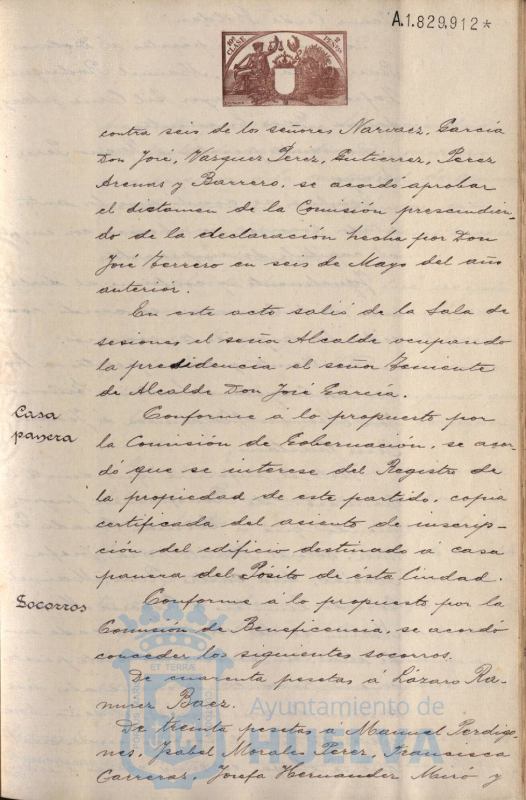 A.1.829.912*
10ª CLASE
2 PESETAS
contra seis de los señores Narvaez, García
Don José, Vazquez Perez, Gutierrez, Perez
Arenas y Barrero, se acordó aprobar
el dictamen de la Comisión prescindien-
do de la declaración hecha por Don
José Ferrero en seis de Mayo del año
anterior.
En este acto salió de la Sala de
sesiones el señor Alcalde ocupando
la presidencia el señor Teniente
de Alcalde Don José García.
Casa
panera
Conforme á lo propuesto por
la Comisión de Gobernación, se acor-
dó que se interese del Registro de
la propiedad de este partido, copia
certificada del asiento de inscrip-
ción del edificio destinado á casa
panera del Pósito de ésta Ciudad.
Socorros
Conforme á lo propuesto por la
Comisión de Beneficencia, se acordó
conceder los siguientes socorros.
De cuarenta pesetas á Lázaro Ra-
mirez Baez.
De treinta pesetas á Manuel Perdigo-
nes, Isabel Morales Perez, Francisca
Carreras, Josefa Hernandez Miró y
ET TERRÆ
Ayuntamiento de
HUELVA